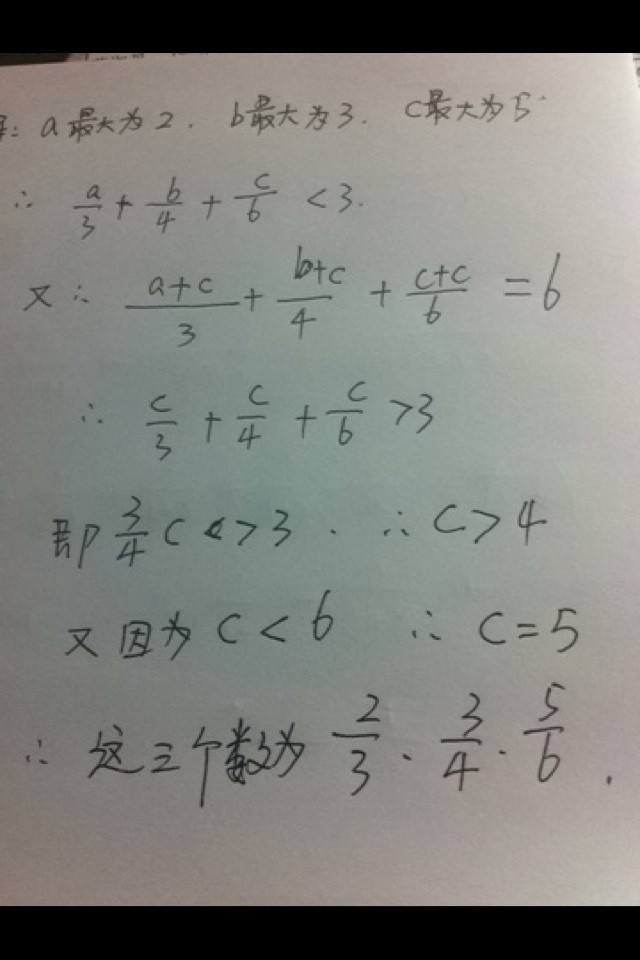 : a最大为2. b最大为3. c最大为5.
∴ a/3 + b/4 + c/6 < 3.
又∴ (a+c)/3 + (b+c)/4 + (c+c)/6 = 6
∴ c/3 + c/4 + c/6 > 3
即 3/4 c > 3 . ∴ c > 4
又因为 c < 6 ∴ c = 5
∴ 这三个数为 2/3 . 3/4 . 5/6 .